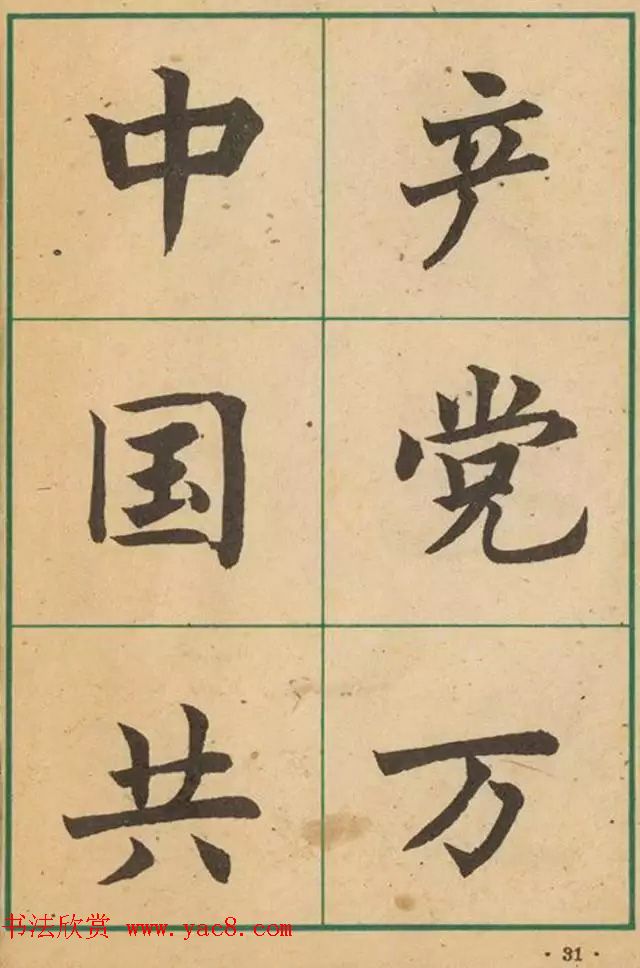 中国共
产党万
书法欣赏 www.yac8.com
· 31 ·